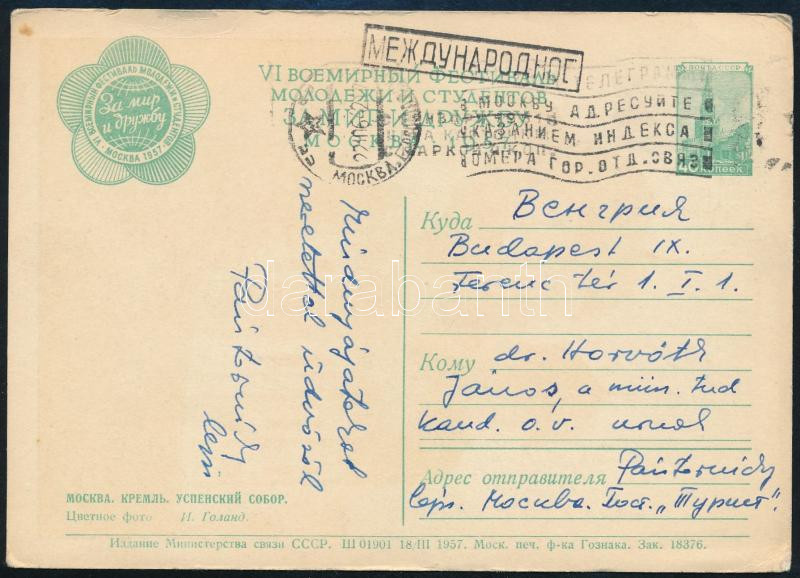 МЕЖДУНАРОДНОЕ
VI ВСЕМИРНЫЙ ФЕСТИВАЛЬ
МОЛОДЕЖИ И СТУДЕНТОВ
ЗА МИР И ДРУЖБУ
МОСКВА 1957
VI ВСЕМИРНЫЙ ФЕСТИВАЛЬ МОЛОДЕЖИ И СТУДЕНТОВ
МОСКВА 1957
За мир
и дружбу
ПОЧТА СССР
40 КОПЕЕК
В МОСКВУ АДРЕСУЙТЕ
С УКАЗАНИЕМ ИНДЕКСА
НОМЕРА ГОР. ОТД. СВЯЗИ
МОСКВА
Куда Венгрия
Budapest IX.
Ferenc tér 1. I. 1.
Кому dr. Horváth
János, a műn. tud
kand. o.v. urnak
Адрес отправителя Pánternidy
Москва. Гост. "Турист".
Mindnyájatokat
szeretettel üdvözöl
МОСКВА. КРЕМЛЬ. УСПЕНСКИЙ СОБОР.
Цветное фото И. Голанд.
Издание Министерства связи СССР. Ш 01901 18/III 1957. Моск. печ. ф-ка Гознака. Зак. 18376.
darabanth